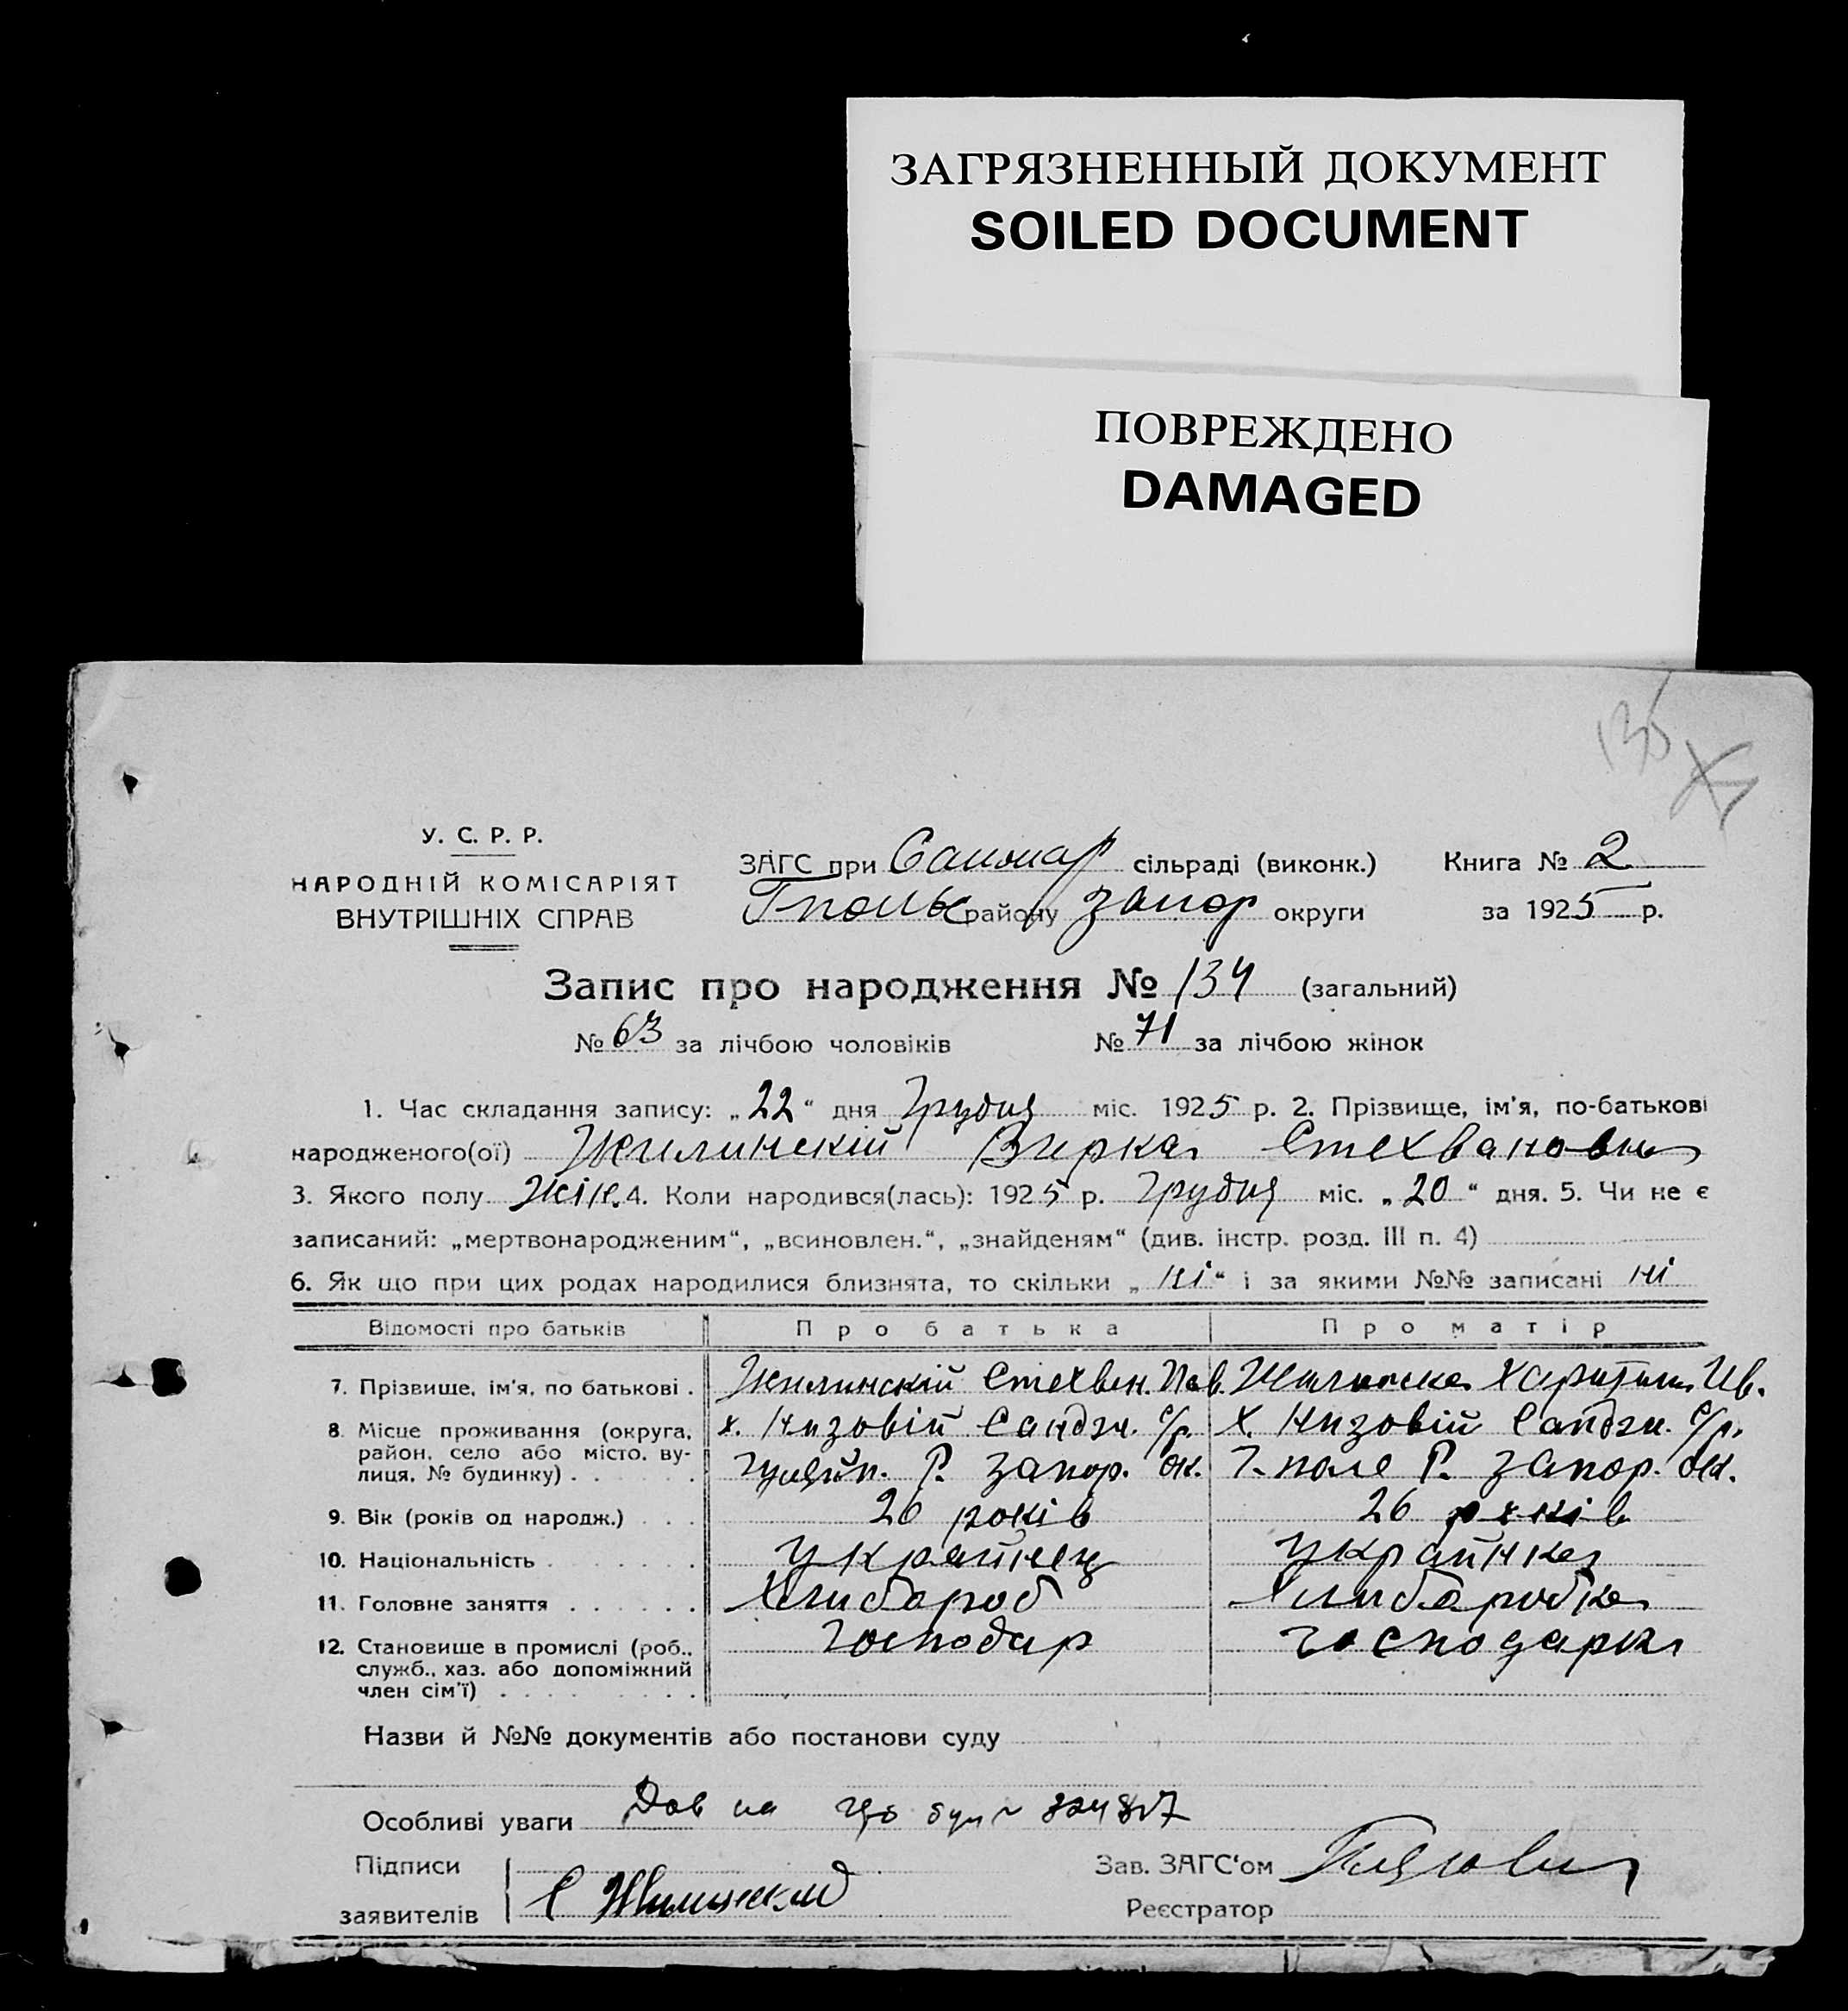 ЗАГРЯЗНЕННЫЙ ДОКУМЕНТ
SOILED DOCUMENT
ПОВРЕЖДЕНО
DAMAGED
У. С. Р. Р.
НАРОДНІЙ КОМІСАРІЯТ
ВНУТРІШНІХ СПРАВ
ЗАГС при сільраді (виконк.) Книга № 2
району Запор округи за 1925 р.
Запис про народження № 134 (загальний)
№ 63 за лічбою чоловіків № 71 за лічбою жінок
1. Час складання запису: „22“ дня Грудня міс. 1925 р. 2. Прізвище, ім'я, по-батькові
народженого(ої) Жилинскій Вирка Стехвановна
3. Якого полу Жін. 4. Коли народився(лась): 1925 р. Грудня міс. „20“ дня. 5. Чи не є
записаний: „мертвонародженим“, „всиновлен.“, „знайденям“ (див. інстр. розд. III п. 4)
6. Як що при цих родах народилися близнята, то скільки „ні“ і за якими №№ записані ні
Відомості про батьків Про батька Про матір
7. Прізвище, ім'я, по батькові . Жилинскій Стехван. Пав. Жилинска Харитина Ив.
8. Місце проживання (округа, х. Низовій с/р. х. Низовій с/р.
район, село або місто, ву-
лиця, № будинку) . . . Гуляйп. Р. Запор. ок. Г-поле Р. Запор. ок.
9. Вік (років од народж.) . . . 26 років 26 років
10. Національність . . . Украйнец Украйнка
11. Головне заняття . . . Хлибароб Хлибаробка
12. Становище в промислі (роб., Господар Господарка
служб., хаз. або допоміжний
член сім'ї) . . .
Назви й №№ документів або постанови суду
Особливі уваги
Підписи Зав. ЗАГС'ом
заявителів С Жилинский Реєстратор